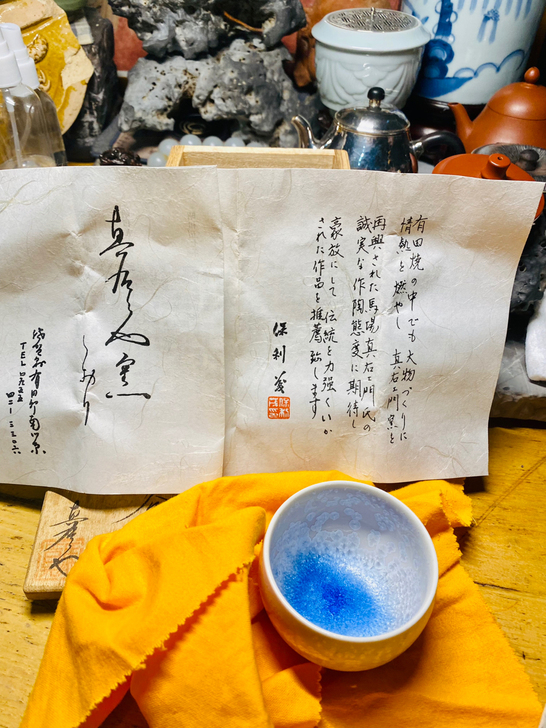 有田焼の中でも大物づくりに
情熱を燃やし 真右ェ門窯を
再興された馬場真右ェ門氏の
誠実な作陶態度に期待し
豪放にして伝統を力強くいか
された作品を推薦致します
保利 茂
真右ェ門窯
しおり
佐賀県有田町南原
TEL 〇九五五
四二-三二〇六